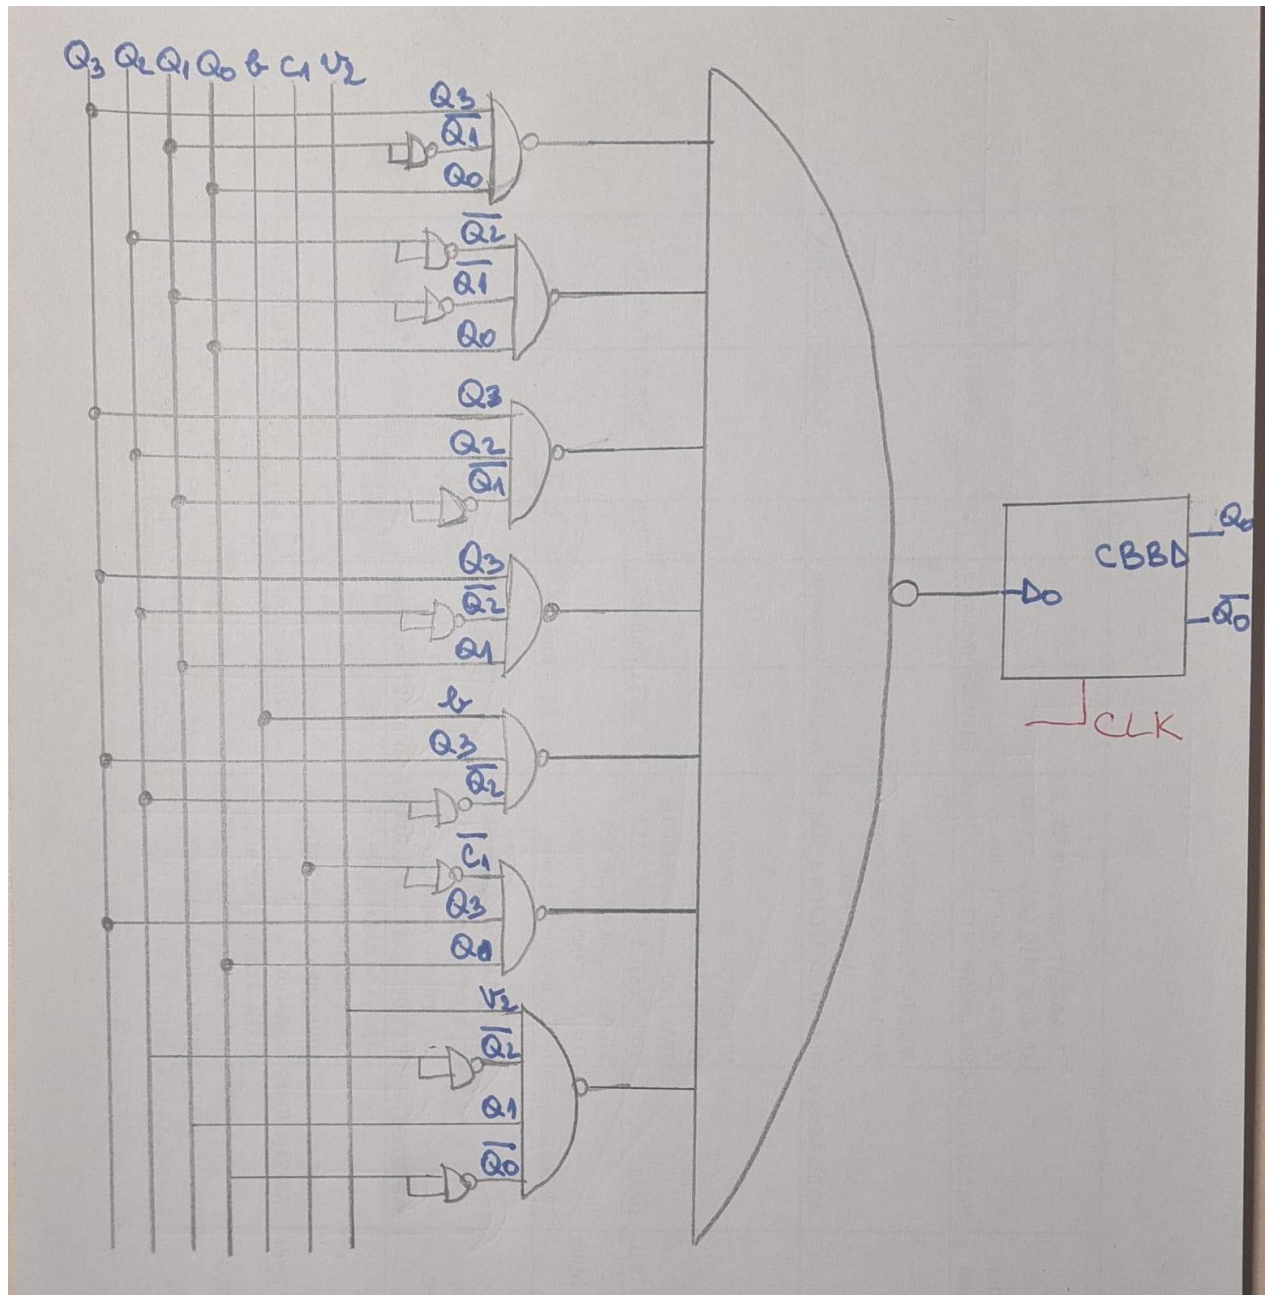 Q3 Q2 Q1 Q0 b C1 V2
Q3
Q̅1̅
Q0
Q̅2̅
Q̅1̅
Q0
Q3
Q2
Q̅1̅
Q3
Q̅2̅
Q1
b
Q3
Q̅2̅
C̅1̅
Q3
Q0
V2
Q̅2̅
Q1
Q̅0̅
Q0
CBBD
D0
Q̅0̅
CLK